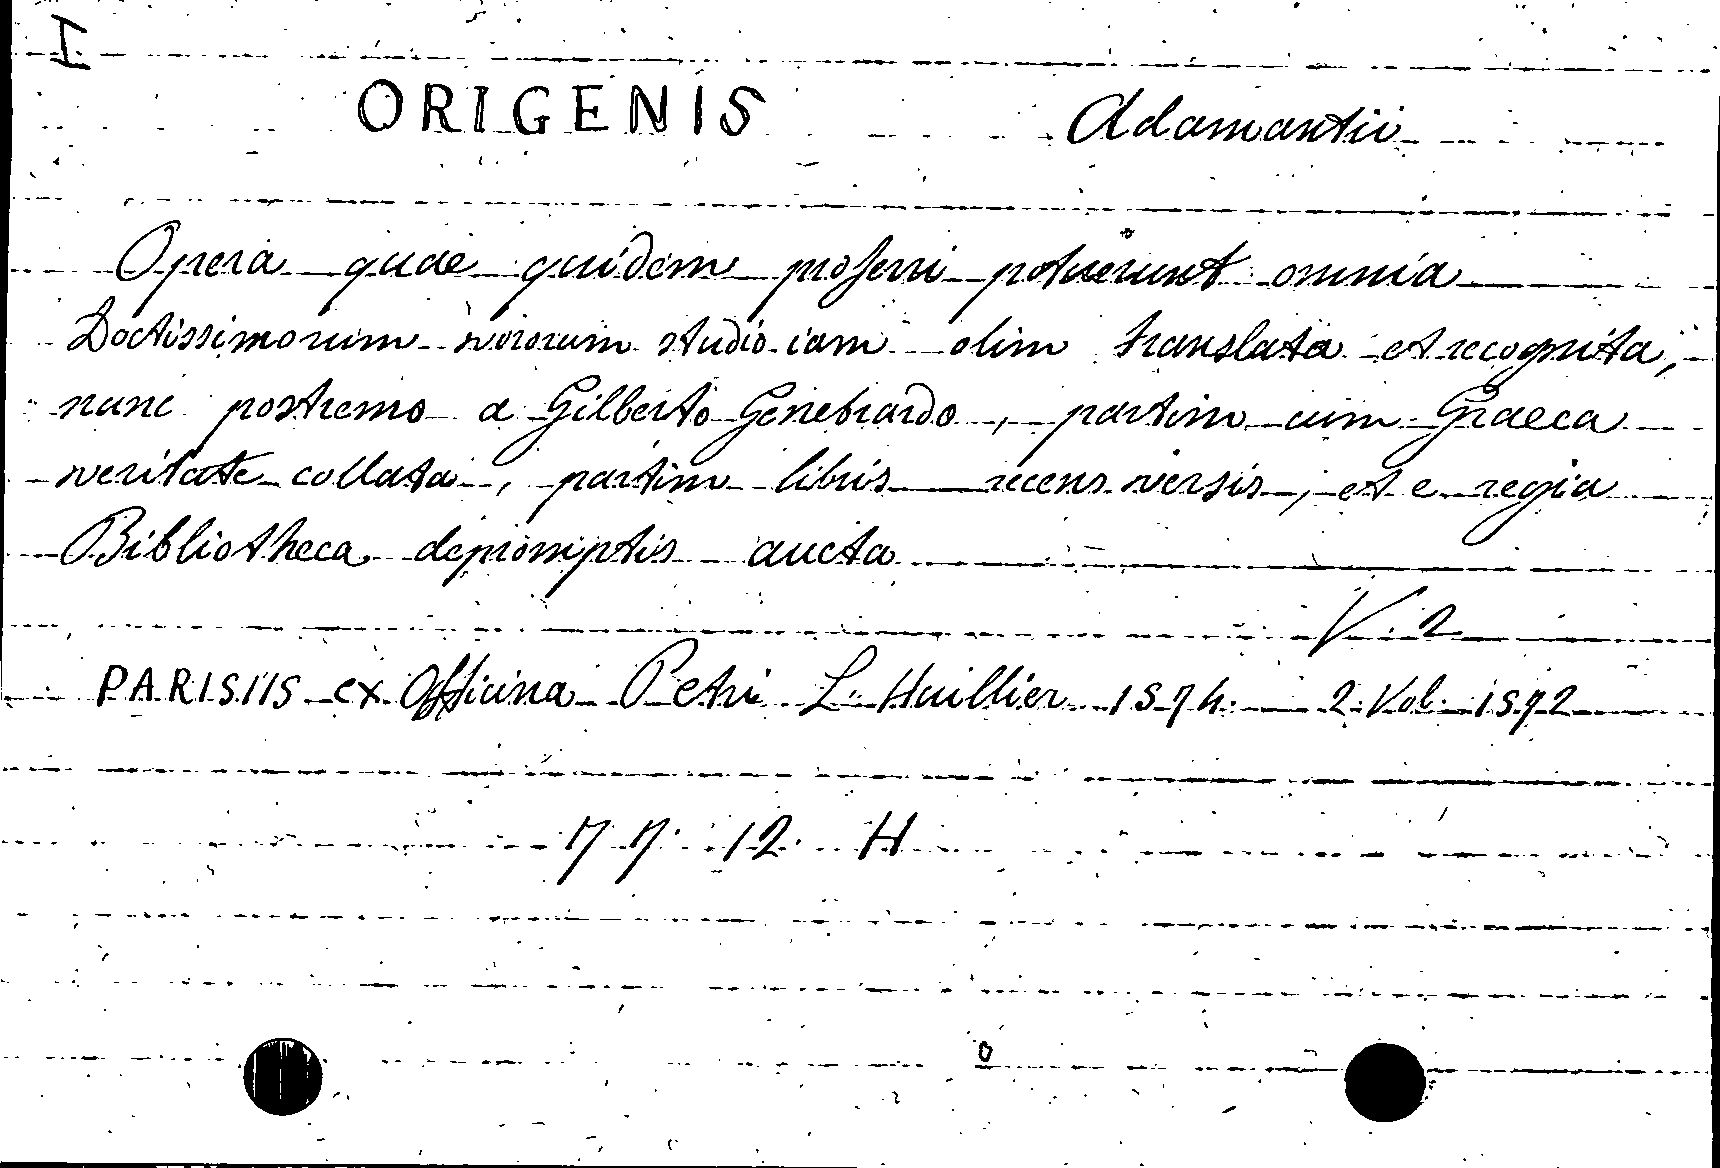 I
ORIGENIS Adamantii
Opera quae quidem proferri potuerunt omnia
Doctissimorum virorum studio iam olim translata et recognita,
nunc postremo a Gilberto Genebrardo, partim cum Graeca
veritate collata, partim libris recens versis, et e regia
Bibliotheca depromptis aucta
V. 2
PARISIIS ex Officina Petri L. Huillier 1574. 2 Vol. 1572
12. H